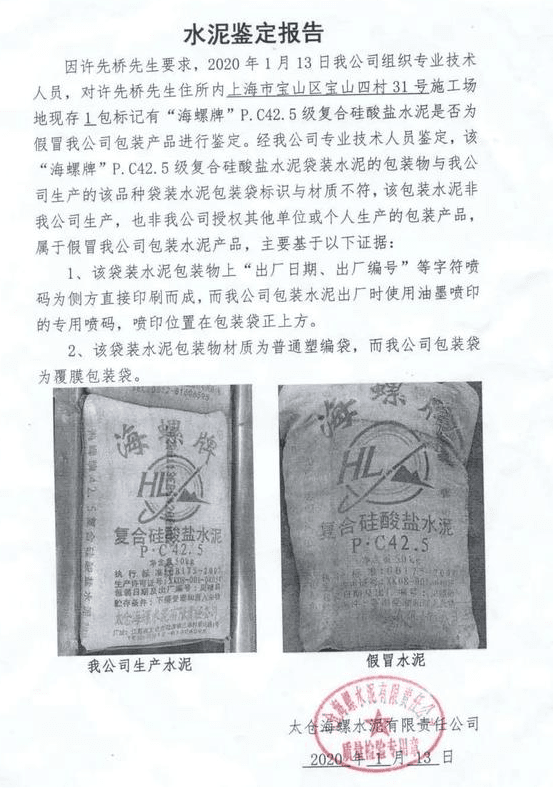 水泥鉴定报告
因许先桥先生要求，2020年1月13日我公司组织专业技术
人员，对许先桥先生住所内上海市宝山区宝山四村31号施工场
地现存1包标记有“海螺牌”P.C42.5级复合硅酸盐水泥是否为
假冒我公司包装产品进行鉴定。经我公司专业技术人员鉴定，该
“海螺牌”P.C42.5级复合硅酸盐水泥袋装水泥的包装物与我公
司生产的该品种袋装水泥包装袋标识与材质不符，该包装水泥非
我公司生产，也非我公司授权其他单位或个人生产的包装产品，
属于假冒我公司包装水泥产品，主要基于以下证据：
1、该袋装水泥包装物上“出厂日期、出厂编号”等字符喷
码为侧方直接印刷而成，而我公司包装水泥出厂时使用油墨喷印
的专用喷码，喷印位置在包装袋正上方。
2、该袋装水泥包装物材质为普通塑编袋，而我公司包装袋
为覆膜包装袋。
海螺牌
HL
复合硅酸盐水泥
P·C42.5
净含量50kg
太仓海螺水泥有限责任公司
海螺牌
HL
复合硅酸盐水泥
P·C42.5
净含量50kg
我公司生产水泥
假冒水泥
太仓海螺水泥有限责任公司
质量检验专用章
2020年1月13日